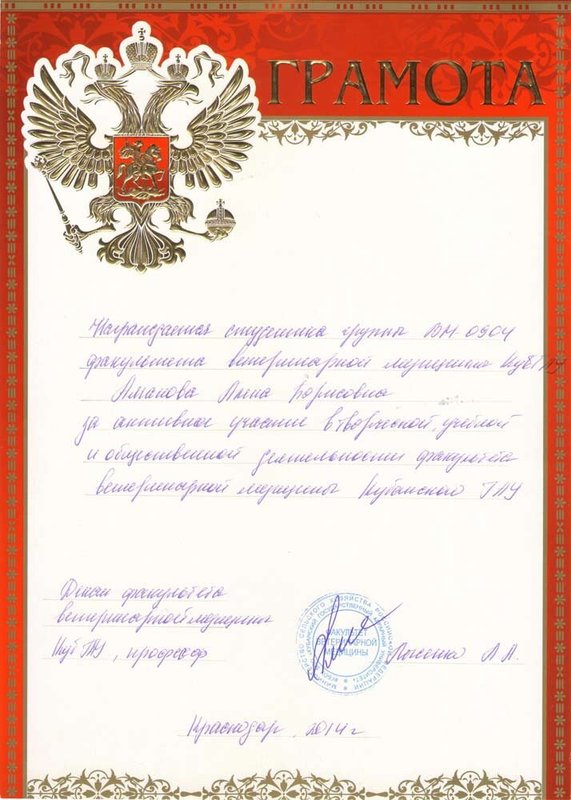 ГРАМОТА
Награждается студентка группы ВМ 0904
факультета ветеринарной медицины КубГАУ
Аманова Анна Борисовна
за активное участие в творческой, учебной
и общественной деятельности факультета
ветеринарной медицины Кубанского ГАУ
Декан факультета
ветеринарной медицины
КубГАУ, профессор
ФАКУЛЬТЕТ
ВЕТЕРИНАРНОЙ
МЕДИЦИНЫ
А.А.
Краснодар, 2014 г